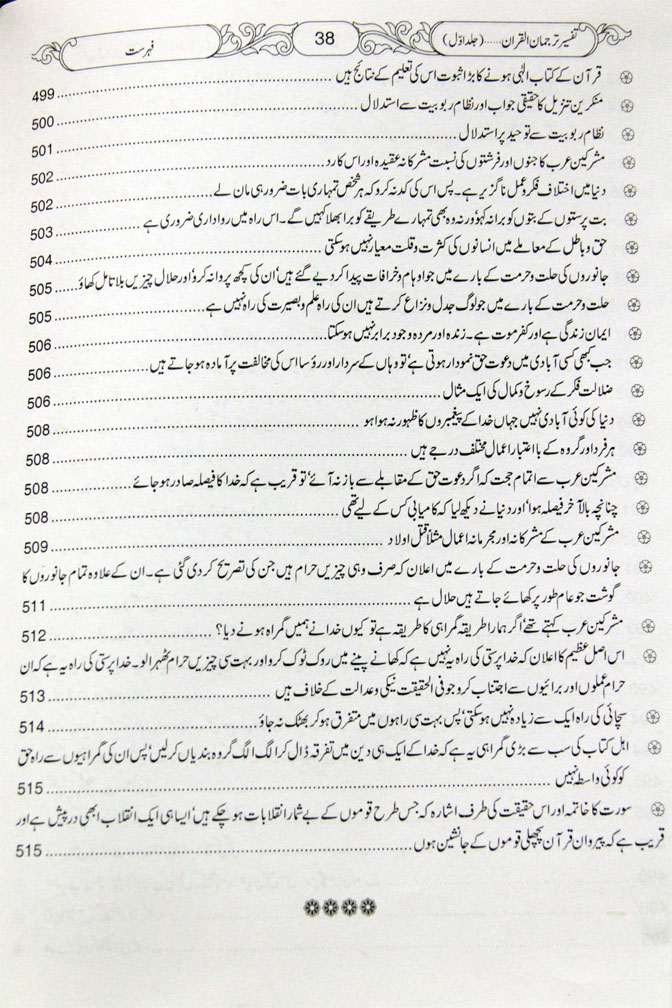 تفسیر ترجمان القرآن.....(جلد اوّل) 38 فہرست
قرآن کے کتاب الٰہی ہونے کا بڑا ثبوت اس کی تعلیم کے نتائج ہیں 499
منکرین تنزیل کا حقیقی جواب اور نظام ربوبیت سے استدلال 500
نظام ربوبیت سے توحید پر استدلال 501
مشرکین عرب کا جنوں اور فرشتوں کی نسبت مشرکانہ عقیدہ اور اس کا رد 502
دنیا میں اختلاف فکر و عمل ناگزیر ہے۔ پس اس کی کد نہ کرو کہ ہر شخص تمہاری بات ضرور ہی مان لے 502
بت پرستوں کے بتوں کو برا نہ کہو ورنہ وہ بھی تمہارے طریقے کو برا بھلا کہیں گے۔ اس راہ میں رواداری ضروری ہے 503
حق و باطل کے معاملے میں انسانوں کی کثرت و قلت معیار نہیں ہو سکتی 504
جانوروں کی حلت و حرمت کے بارے میں جو اوہام و خرافات پیدا کر دیے گئے ہیں' ان کی کچھ پروا نہ کرو' اور حلال چیزیں بلا تامل کھاؤ 505
حلت و حرمت کے بارے میں جو لوگ جدل و نزاع کرتے ہیں ان کی راہ علم و بصیرت کی راہ نہیں ہے 505
ایمان زندگی ہے اور کفر موت ہے۔ زندہ اور مردہ وجود برابر نہیں ہو سکتا 506
جب بھی کسی آبادی میں دعوت حق نمودار ہوتی ہے' تو وہاں کے سردار اور رؤسا اس کی مخالفت پر آمادہ ہو جاتے ہیں 506
ضلالت فکر کے رسوخ و کمال کی ایک مثال 506
دنیا کی کوئی آبادی نہیں جہاں خدا کے پیغمبروں کا ظہور نہ ہوا ہو 508
ہر فرد اور گروہ کے با اعتبار اعمال مختلف درجے ہیں 508
مشرکین عرب سے اتمام حجت کہ اگر دعوت حق کے مقابلے سے باز نہ آئے' تو قریب ہے کہ خدا کا فیصلہ صادر ہو جائے 508
چنانچہ بالآخر فیصلہ ہوا' اور دنیا نے دیکھ لیا کہ کامیابی کس کے لیے تھی 508
مشرکین عرب کے مشرکانہ اور مجرمانہ اعمال مثلاً قتل اولاد 509
جانوروں کی حلت و حرمت کے بارے میں اعلان کہ صرف وہی چیزیں حرام ہیں جن کی تصریح کر دی گئی ہے۔ ان کے علاوہ تمام جانوروں کا
گوشت جو عام طور پر کھائے جاتے ہیں حلال ہے 511
مشرکین عرب کہتے تھے' اگر ہمارا طریقہ گمراہی کا طریقہ ہے تو کیوں خدا نے ہمیں گمراہ ہونے دیا؟ 512
اس اصل عظیم کا اعلان کہ خدا پرستی کی راہ یہ نہیں ہے کہ کھانے پینے میں روک ٹوک کرو اور بہت سی چیزیں حرام ٹھہرا لو۔ خدا پرستی کی راہ یہ ہے کہ ان
حرام عملوں اور برائیوں سے اجتناب کرو جو فی الحقیقت نیکی و عدالت کے خلاف ہیں 513
سچائی کی راہ ایک سے زیادہ نہیں ہو سکتی' پس بہت سی راہوں میں متفرق ہو کر بھٹک نہ جاؤ 514
اہل کتاب کی سب سے بڑی گمراہی یہ ہے کہ خدا کے ایک ہی دین میں تفرقہ ڈال کر الگ الگ گروہ بندیاں کر لیں' پس ان کی گمراہیوں سے راہ حق
کو کوئی واسطہ نہیں 515
سورت کا خاتمہ اور اس حقیقت کی طرف اشارہ کہ جس طرح قوموں کے بے شمار انقلابات ہو چکے ہیں' ایسا ہی ایک انقلاب ابھی درپیش ہے اور
قریب ہے کہ پیروان قرآن پچھلی قوموں کے جانشین ہوں 515